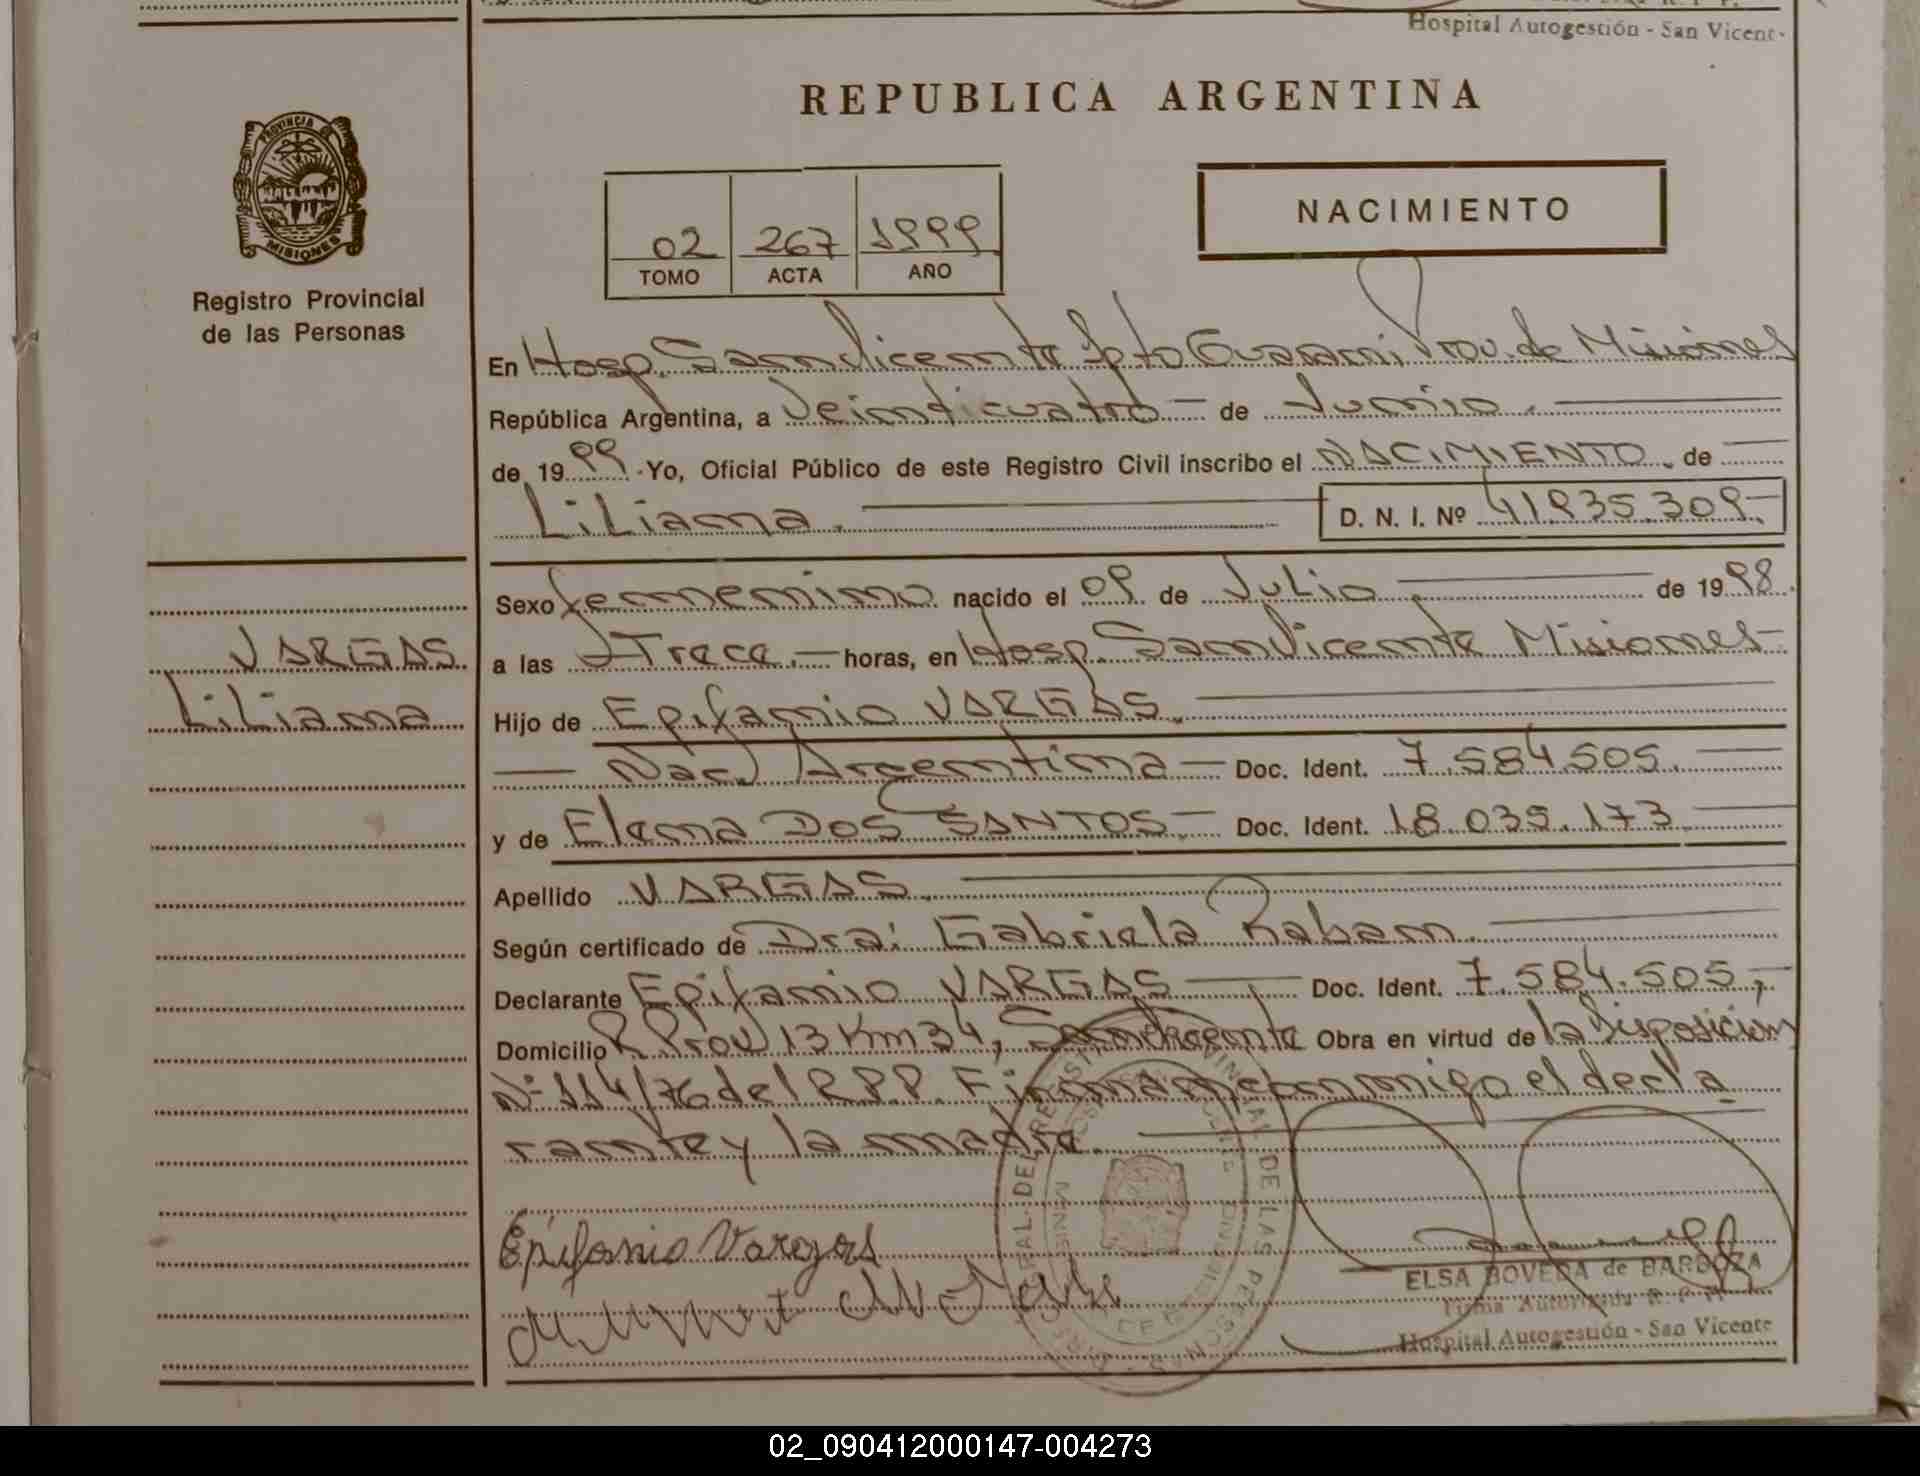 Hospital Autogestión - San Vicent-
REPUBLICA ARGENTINA
PROVINCIA DE
MISIONES
Registro Provincial
de las Personas
02 267 1999
TOMO ACTA AÑO
NACIMIENTO
En Hosp. San Vicente Dpto Guarani, Prov. de Misiones
República Argentina, a Veinticuatro de Junio.
de 1999. Yo, Oficial Público de este Registro Civil inscribo el NACIMIENTO. de
Liliana. D. N. I. Nº 41.935.309.
Sexo femenino nacido el 09 de Julio de 1998.
VARGAS a las Trece. horas, en Hosp. San Vicente Misiones
Liliana Hijo de Epifanio VARGAS.
Nac. Argentina Doc. Ident. 7.584.505.
y de Elena DOS SANTOS. Doc. Ident. 18.035.173
Apellido VARGAS.
Según certificado de Dra: Gabriela Raban.
Declarante Epifanio VARGAS Doc. Ident. 7.584.505,
Domicilio R Prov 13 Km 34, San Vicente Obra en virtud de la Disposicion
Nº 114/76 del R.P.P. Firman conmigo el decla
rante y la madre.
Epifanio Vargas
ELSA BOVEDA de BARBOZA
Firma Autorizada R. P. P.
Hospital Autogestión - San Vicente
02_090412000147-004273